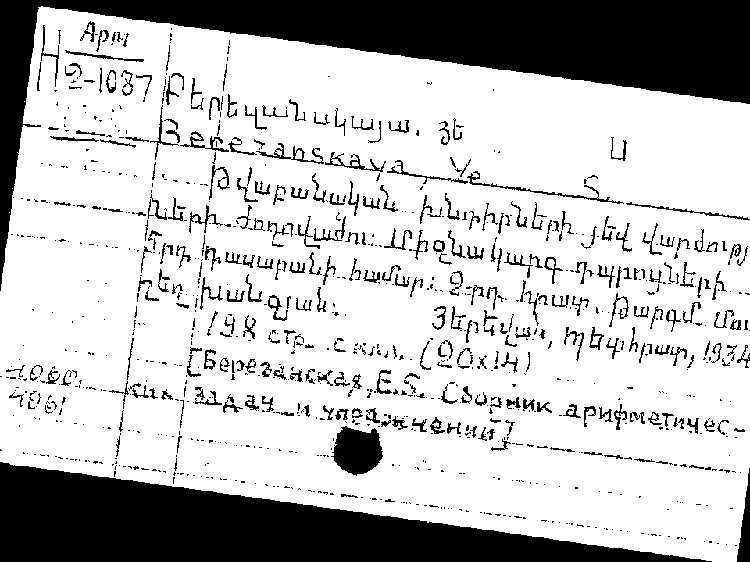 Арм
2-1087
Բերեզանսկայա. Յե Ս
Berezanskaya, Ye S.
Թվաբանական խնդիրների յեվ վարժությ
ների ժողովածու: Միջնակարգ դպրոցների
5րդ դասարանի համար: 2-րդ հրատ. Թարգմ.
Խանզյան: Յերեվան, Պետհրատ, 1934
198 стр. с илл. (20x14)
[Березанская, Е.S. Сборник арифметичес-
ких задач и упражнений]
4060.
4061